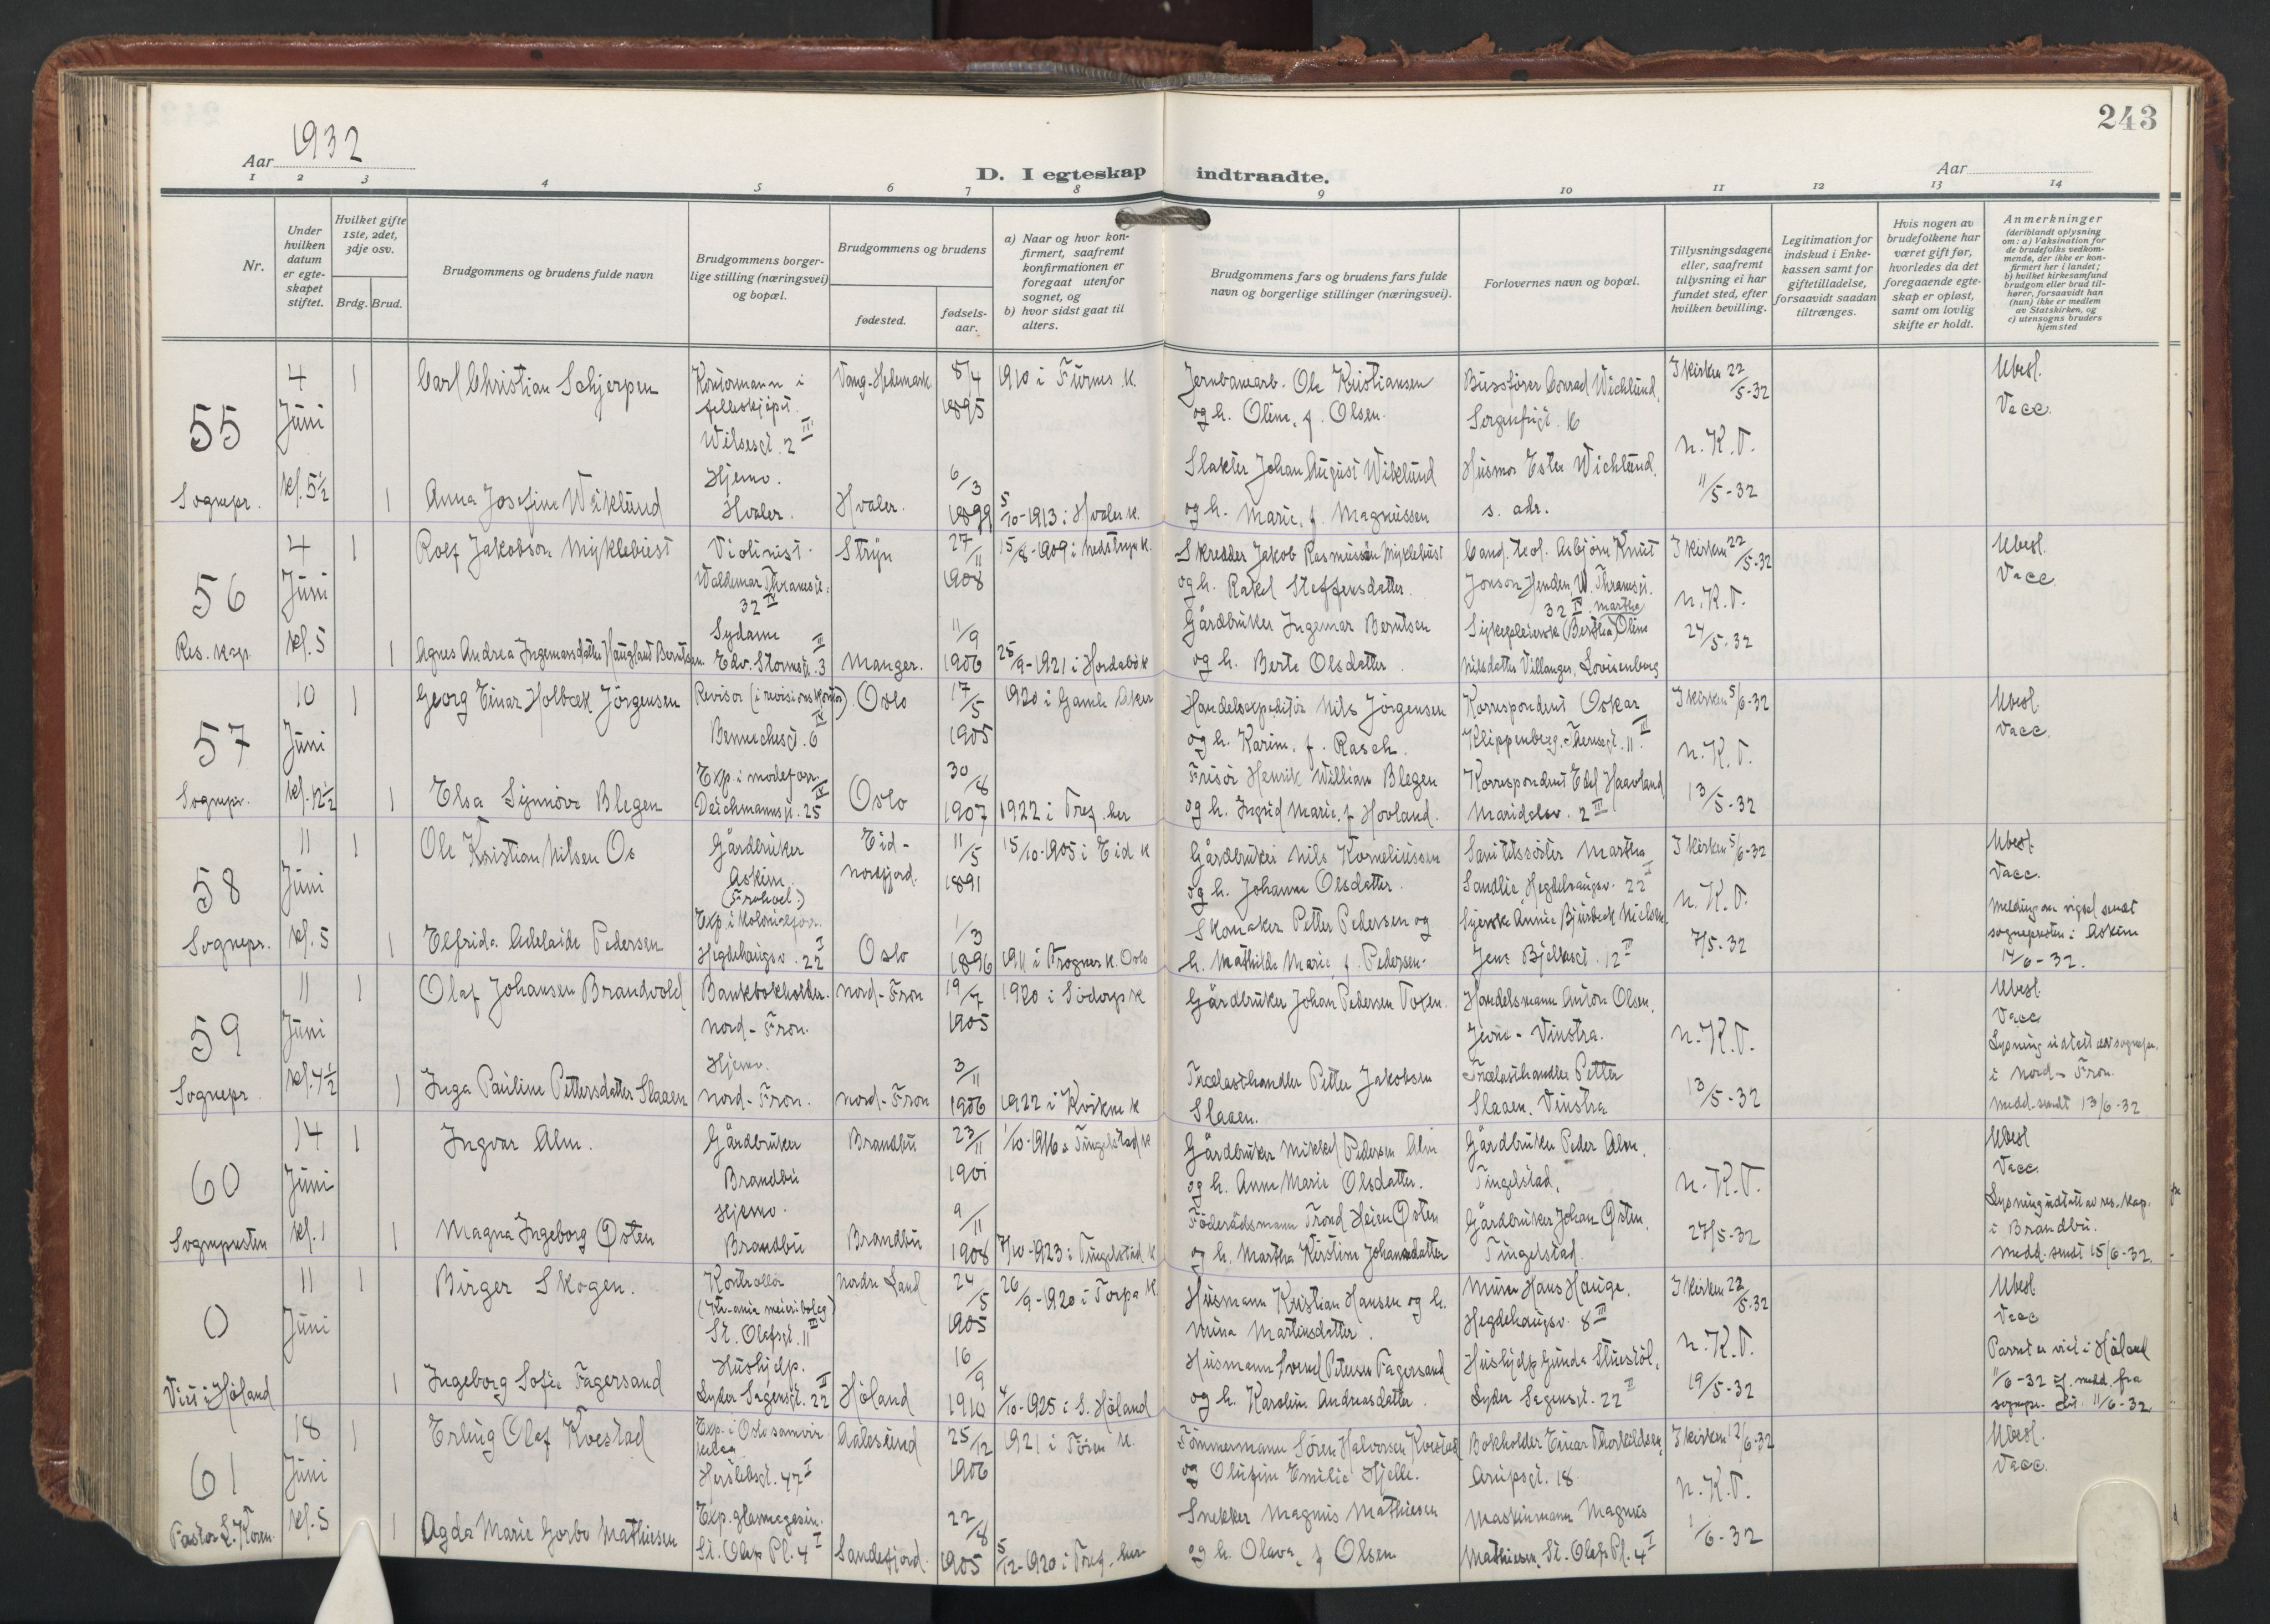 243
Aar 1932
D. I egteskap indtraadte.
Aar
1 2 3 4 5 6 7 8 9 10 11 12 13 14
Nr.
Under hvilken datum er egteskapet stiftet.
Hvilket gifte 1ste, 2det, 3dje osv.
Brdg. Brud.
Brudgommens og brudens fulde navn
Brudgommens borgerlige stilling (næringsvei) og bopæl.
Brudgommens og brudens
fødested.
fødselsaar.
a) Naar og hvor konfirmert, saafremt konfirmationen er foregaat utenfor sognet, og
b) hvor sidst gaat til alters.
Brudgommens fars og brudens fars fulde navn og borgerlige stillinger (næringsvei).
Forlovernes navn og bopæl.
Tillysningsdagene eller, saafremt tillysning ei har fundet sted, efter hvilken bevilling.
Legitimation for indskud i Enkekassen samt for giftetilladelse, forsaavidt saadan tiltrænges.
Hvis nogen av brudefolkene har været gift før, hvorledes da det foregaaende egteskap er opløst, samt om lovlig skifte er holdt.
Anmerkninger (deriblandt oplysning om: a) Vaksination for de brudefolks vedkommende, der ikke er konfirmert her i landet; b) hvilket kirkesamfund brudgom eller brud tilhører, forsaavidt han (hun) ikke er medlem av Statskirken, og c) utensogns bruders hjemsted
55 Sognepr.
4 Juni kl. 5½
1 Carl Christian Schjerpen
Kontormann i felleskjøpet. Wilsesgt. 2 III
Vang-Hedemark
8/4 1895
1910 i Furnes k.
Jernbanearb. Ole Kristiansen og h. Oline, f. Olsen.
Bussfører Conrad Wichlund, Sorgenfrigt. 16
I kirken 22/5-32
N.K.T. 11/5-32
Ubesl. Vacc.
1 Anna Josefine Wiklund
Hjemv. Hvaler.
Hvaler.
6/3 1899
5/10-1913 i Hvaler k.
Slakter Johan August Wiklund og h. Marie, f. Magnussen
Husmor Ester Wichlund. s. adr.
56 Res. kap.
4 Juni kl. 5
1 Rolf Jakobson Myklebust
Violinist. Waldemar Thranesgt. 32 IV
Stryn
27/11 1908
15/8-1909 i Nedstryn k.
Skredder Jakob Rasmussen Myklebust og h. Rakel Steffensdatter.
Cand. teol. Asbjørn Knut Jonson Henden, W. Thranesgt. 32 IV
I kirken 22/5-32
N.K.T. 24/5-32
Ubesl. Vacc.
1 Agnes Andrea Ingemarsdatter Haugland Berntsen
Sydame Edv. Stormsgt. 3 III
Manger.
11/9 1906
25/9-1921 i Hordabø k
Gårdbruker Ingemar Berntsen og h. Berte Olsdatter.
Sykepleierske (Berthea) Martha Oline Nilsdatter Villanger, Lovisenberg
57 Sognepr.
10 Juni kl. 12½
1 Georg Einar Holbæk Jørgensen
Revisor (i revisionskontor) Bennechesgt. 6 IV
Oslo
17/5 1905
1920 i Gamle Aker
Handelsexpeditør Nils Jørgensen og h. Karin, f. Rasch.
Korrespondent Oskar Klippenberg, Theresegt. 11 III
I kirken 5/6-32
N.K.T. 13/5-32
Ubesl. Vacc.
1 Elsa Synnøve Blegen
Exp. i modeforr. Deichmannsgt. 25 IV
Oslo
30/8 1907
1922 i Tref. her
Frisør Henrik William Blegen og h. Ingrid Marie, f. Hovland.
Korrespondent Edel Haavland, Maridalsv. 2 III
58 Sognepr.
11 Juni kl. 5
1 Ole Kristian Nilsen Os
Gårdbruker Askim. (Frohoel.)
Eid - Nordfjord.
11/5 1891
15/10-1905 i Eid k
Gårdbruker Nils Korneliussen og h. Johanne Olsdatter.
Sanitetssøster Martha Sandlie, Hegdehaugsv. 22 I
I kirken 5/6-32
N.K.T. 7/5-32
Ubesl. Vacc. Melding om vigsel sendt sognepresten i Askim 14/6-32.
1 Elfrida Adelaide Pedersen
Exp. i kolonialforr. Hegdehaugsv. 22 I
Oslo
1/3 1896
1911 i Frogner k. Oslo
Skomaker Petter Pedersen og h. Mathilde Marie, f. Pedersen.
Syerske Annie Bjurbeck Nielsen Jens Bjelkesgt. 12 II
59 Sognepr.
11 Juni kl. 4½
1 Olaf Johansen Brandvold
Bankbokholder. Nord-Fron.
Nord-Fron
19/7 1905
1920 i Sødorp k
Gårdbruker Johan Pedersen Toxen.
Handelsmann Anton Olsen, Jevne - Vinstra.
N.K.T. 13/5-32
Ubesl. Vacc. Lysning utstedt av sognepr. i Nord-Fron. Medd. sendt 13/6-32
1 Inga Pauline Pettersdatter Slaaen
Hjemv. Nord-Fron.
Nord-Fron
3/11 1906
1922 i Kvikne k
Trælasthandler Petter Jakobsen Slaaen.
Trælasthandler Petter Slaaen, Vinstra
60 Sognepresten
14 Juni kl. 1
1 Ingvar Alm.
Gårdbruker Brandbu
Brandbu
23/11 1901
1/10-1916 i Tingelstad k
Gårdbruker Mikkel Pedersen Alm og h. Anne Marie Olsdatter.
Gårdbruker Peder Alm, Tingelstad,
N.K.T. 27/5-32
Ubesl Vacc. Lysning utstedt av res. kap. i Brandbu. Medd. sendt 15/6-32.
1 Magna Ingeborg Østen
Hjemv. Brandbu
Brandbu
9/11 1908
7/10-1923 i Tingelstad k
Føderådsmann Trond Heien Østen og h. Martha Kirstine Johansdatter
Gårdbruker Johan Østen, Tingelstad.
0 Viet i Høland
11 Juni
1 Birger Skogen.
Kontrollør (Kr.ania meieribolag) St. Olafsgt. 11 III
Nordre Land
24/5 1905
26/9-1920 i Torpa k.
Husmann Kristian Hansen og h. Mina Martinsdatter.
Murer Hans Hauge, Hegdehaugsv. 8 III
I kirken 22/5-32
N.K.T. 19/5-32
Ubesl Vacc Parret er viet i Høland 11/6-32 if. medd. fra sognepr. dat. 11/6-32
1 Ingeborg Sofie Fagersand
Hushjelp. Lyder Sagensgt. 22 II
Høland
16/9 1910
4/10-1925 i S. Høland
Husmann Svend Petersen Fagersand og h. Karoline Andreasdatter.
Hushjelp Gunda Stuestøl, Lyder Sagensgt. 22 II
61 Pastor L. Koren.
18 Juni kl. 5
1 Erling Olaf Kvestad
Exp. i Oslo samvirkelag Herslebsgt. 47 I
Aalesund
25/12 1906
1921 i Tøien k.
Tømmermann Søren Halvorsen Kvestad og Olufine Emilie Hjelle.
Bokholder Einar Thorkildsen, Arupsgt. 18
I kirken 12/6-32
N.K.T. 1/6-32
Ubesl. Vacc.
1 Agda Marie Gorbo Mathiesen
Exp. glasmagasin. St. Olafs Pl. 4 I
Sandefjord.
22/8 1905
5/12-1920 i Tref. her
Snekker Magnus Mathiesen og h. Olava, f Olsen
Maskinmann Magnus Mathiesen, St. Olafs Pl. 4 I